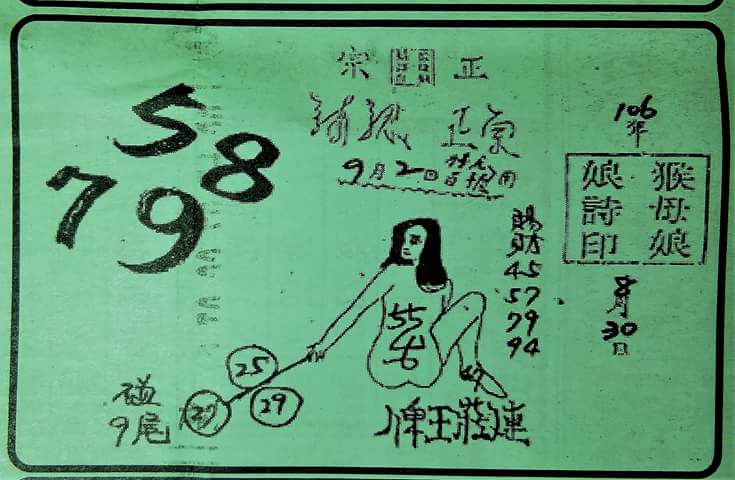 正宗
請認正宗
9月2日
106年
猴母娘
娘詩印
8月30日
賜財
45
57
79
94
58
79
55
25
29
碰
9尾
連莊王牌